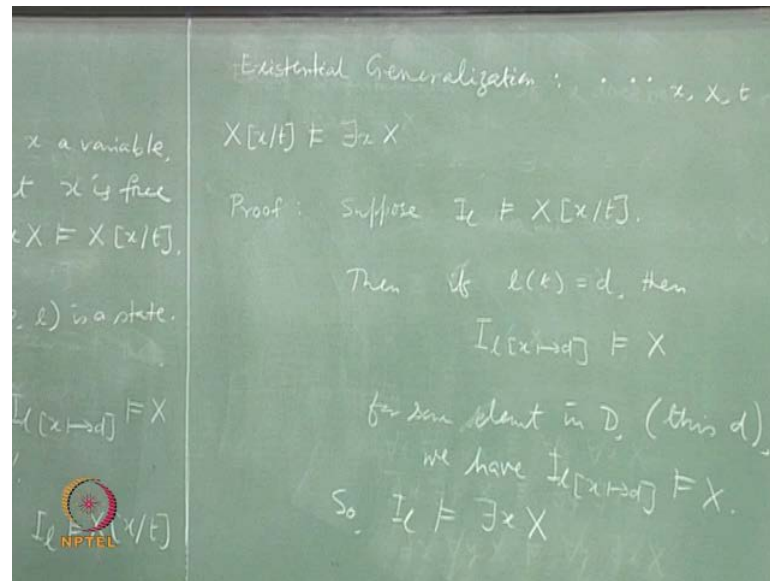 x a variable,
t x is free
x X ⊨ X[x/t].
, l) is a state.
I_{l[x↦d]} ⊨ X
I_l ⊨ X[x/t]
NPTEL
Existential Generalization : . . . x, X, t
X[x/t] ⊨ ∃x X
Proof : Suppose I_l ⊨ X[x/t].
Then if l(t) = d, then
I_{l[x↦d]} ⊨ X
for some element in D, (this d),
we have I_{l[x↦d]} ⊨ X.
So, I_l ⊨ ∃x X